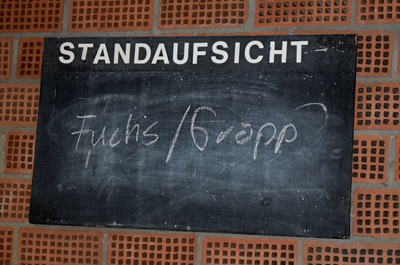 STANDAUFSICHT
Fuchs / Grapp